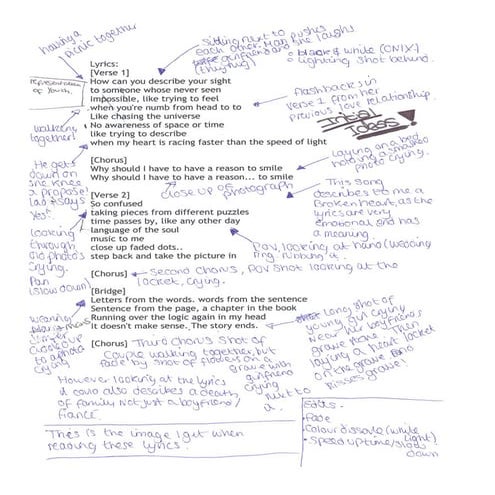 having a
picnic together
sitting next to pushes
each other. Man she laughs
girlfriend
• black & white (ONIX)
• lighting shot behind.
Representation
of Youth.
Lyrics:
[Verse 1]
How can you describe your sight
to someone whose never seen
Impossible, like trying to feel
when you're numb from head to to
Like chasing the universe
No awareness of space or time
like trying to describe
when my heart is racing faster than the speed of light
flashbacks in
verse 1 from her
previous love relationship.
Initial
Ideas!
walking
together.
laying on a bed
holding a
photo crying.
[Chorus]
Why should I have to have a reason to smile
Why should I have to have a reason... to smile
close up of photograph
He gets
down on
one knee
a propose
lad + says
'yes'.
[Verse 2]
So confused
taking pieces from different puzzles
time passes by, like any other day
language of the soul
music to me
close up faded dots..
step back and take the picture in
This song
describes to me a
Broken heart, as the
lyrics are very
emotional and has
a meaning.
looking
through
old photo's
crying.
Pan
(slow down)
POV, looking at hand (wedding
ring. rubbing it.
[Chorus]
second chorus, POV shot looking at the
locket, crying.
[Bridge]
Letters from the words. words from the sentence
Sentence from the page, a chapter in the book
Running over the logic again in my head
It doesn't make sense. The story ends.
wearing
close up
to a photo
crying
Long shot of
young girl crying
near her boyfriends
grave. Then
laying a heart locket
on the grave and
kisses grave.
[Chorus]
Third chorus shot of
couple walking together, but
fade by shot of flowers on a
grave with
girlfriend
crying
next to
it.
However looking at the lyrics
it could also describes a death
of family not just a boyfriend/
fiance.
This is the image I get when
reading these lyrics.
Edits:-
• Fade
• Colour dissolve (white
light)
• Speed up time/slow
down